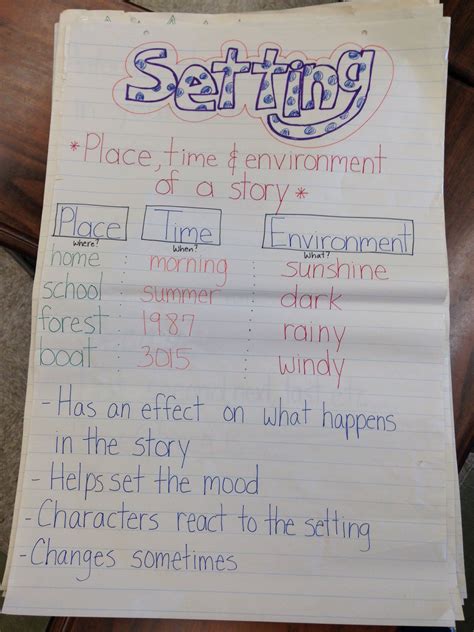 Setting
*Place, time & environment
of a story*
Place Time Environment
where? when? What?
home : morning : sunshine
school : summer : dark
forest : 1987 : rainy
boat : 3015 : windy
- Has an effect on what happens
in the story
- Helps set the mood
- Characters react to the setting
- Changes sometimes